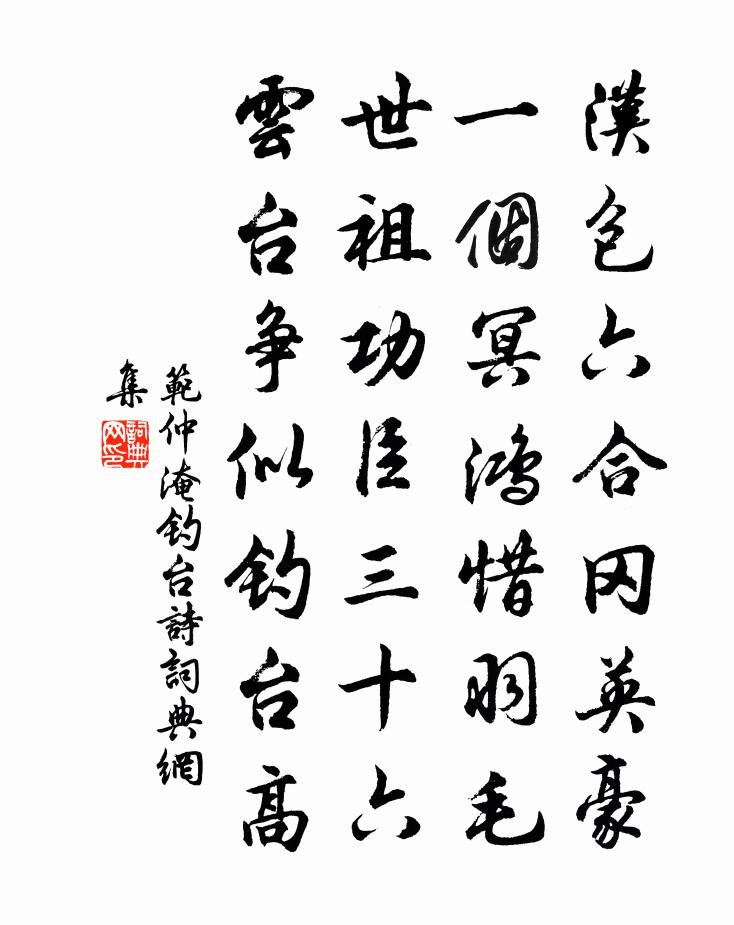 漢包六合冈英豪
一個冥鴻惜羽毛
世祖功臣三十六
雲台争似钓台高
範仲淹钓台詩詞典網
集
詞典
网印